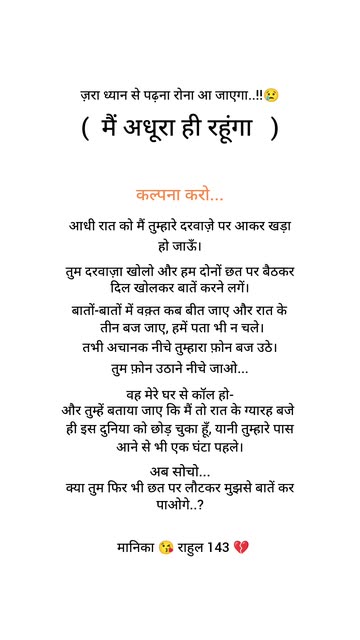 ज़रा ध्यान से पढ़ना रोना आ जाएगा..!!😢
( मैं अधूरा ही रहूंगा )
कल्पना करो...
आधी रात को मैं तुम्हारे दरवाज़े पर आकर खड़ा
हो जाऊँ।
तुम दरवाज़ा खोलो और हम दोनों छत पर बैठकर
दिल खोलकर बातें करने लगें।
बातों-बातों में वक़्त कब बीत जाए और रात के
तीन बज जाए, हमें पता भी न चले।
तभी अचानक नीचे तुम्हारा फ़ोन बज उठे।
तुम फ़ोन उठाने नीचे जाओ...
वह मेरे घर से कॉल हो-
और तुम्हें बताया जाए कि मैं तो रात के ग्यारह बजे
ही इस दुनिया को छोड़ चुका हूँ, यानी तुम्हारे पास
आने से भी एक घंटा पहले।
अब सोचो...
क्या तुम फिर भी छत पर लौटकर मुझसे बातें कर
पाओगे..?
मानिका 😘 राहुल 143 💔